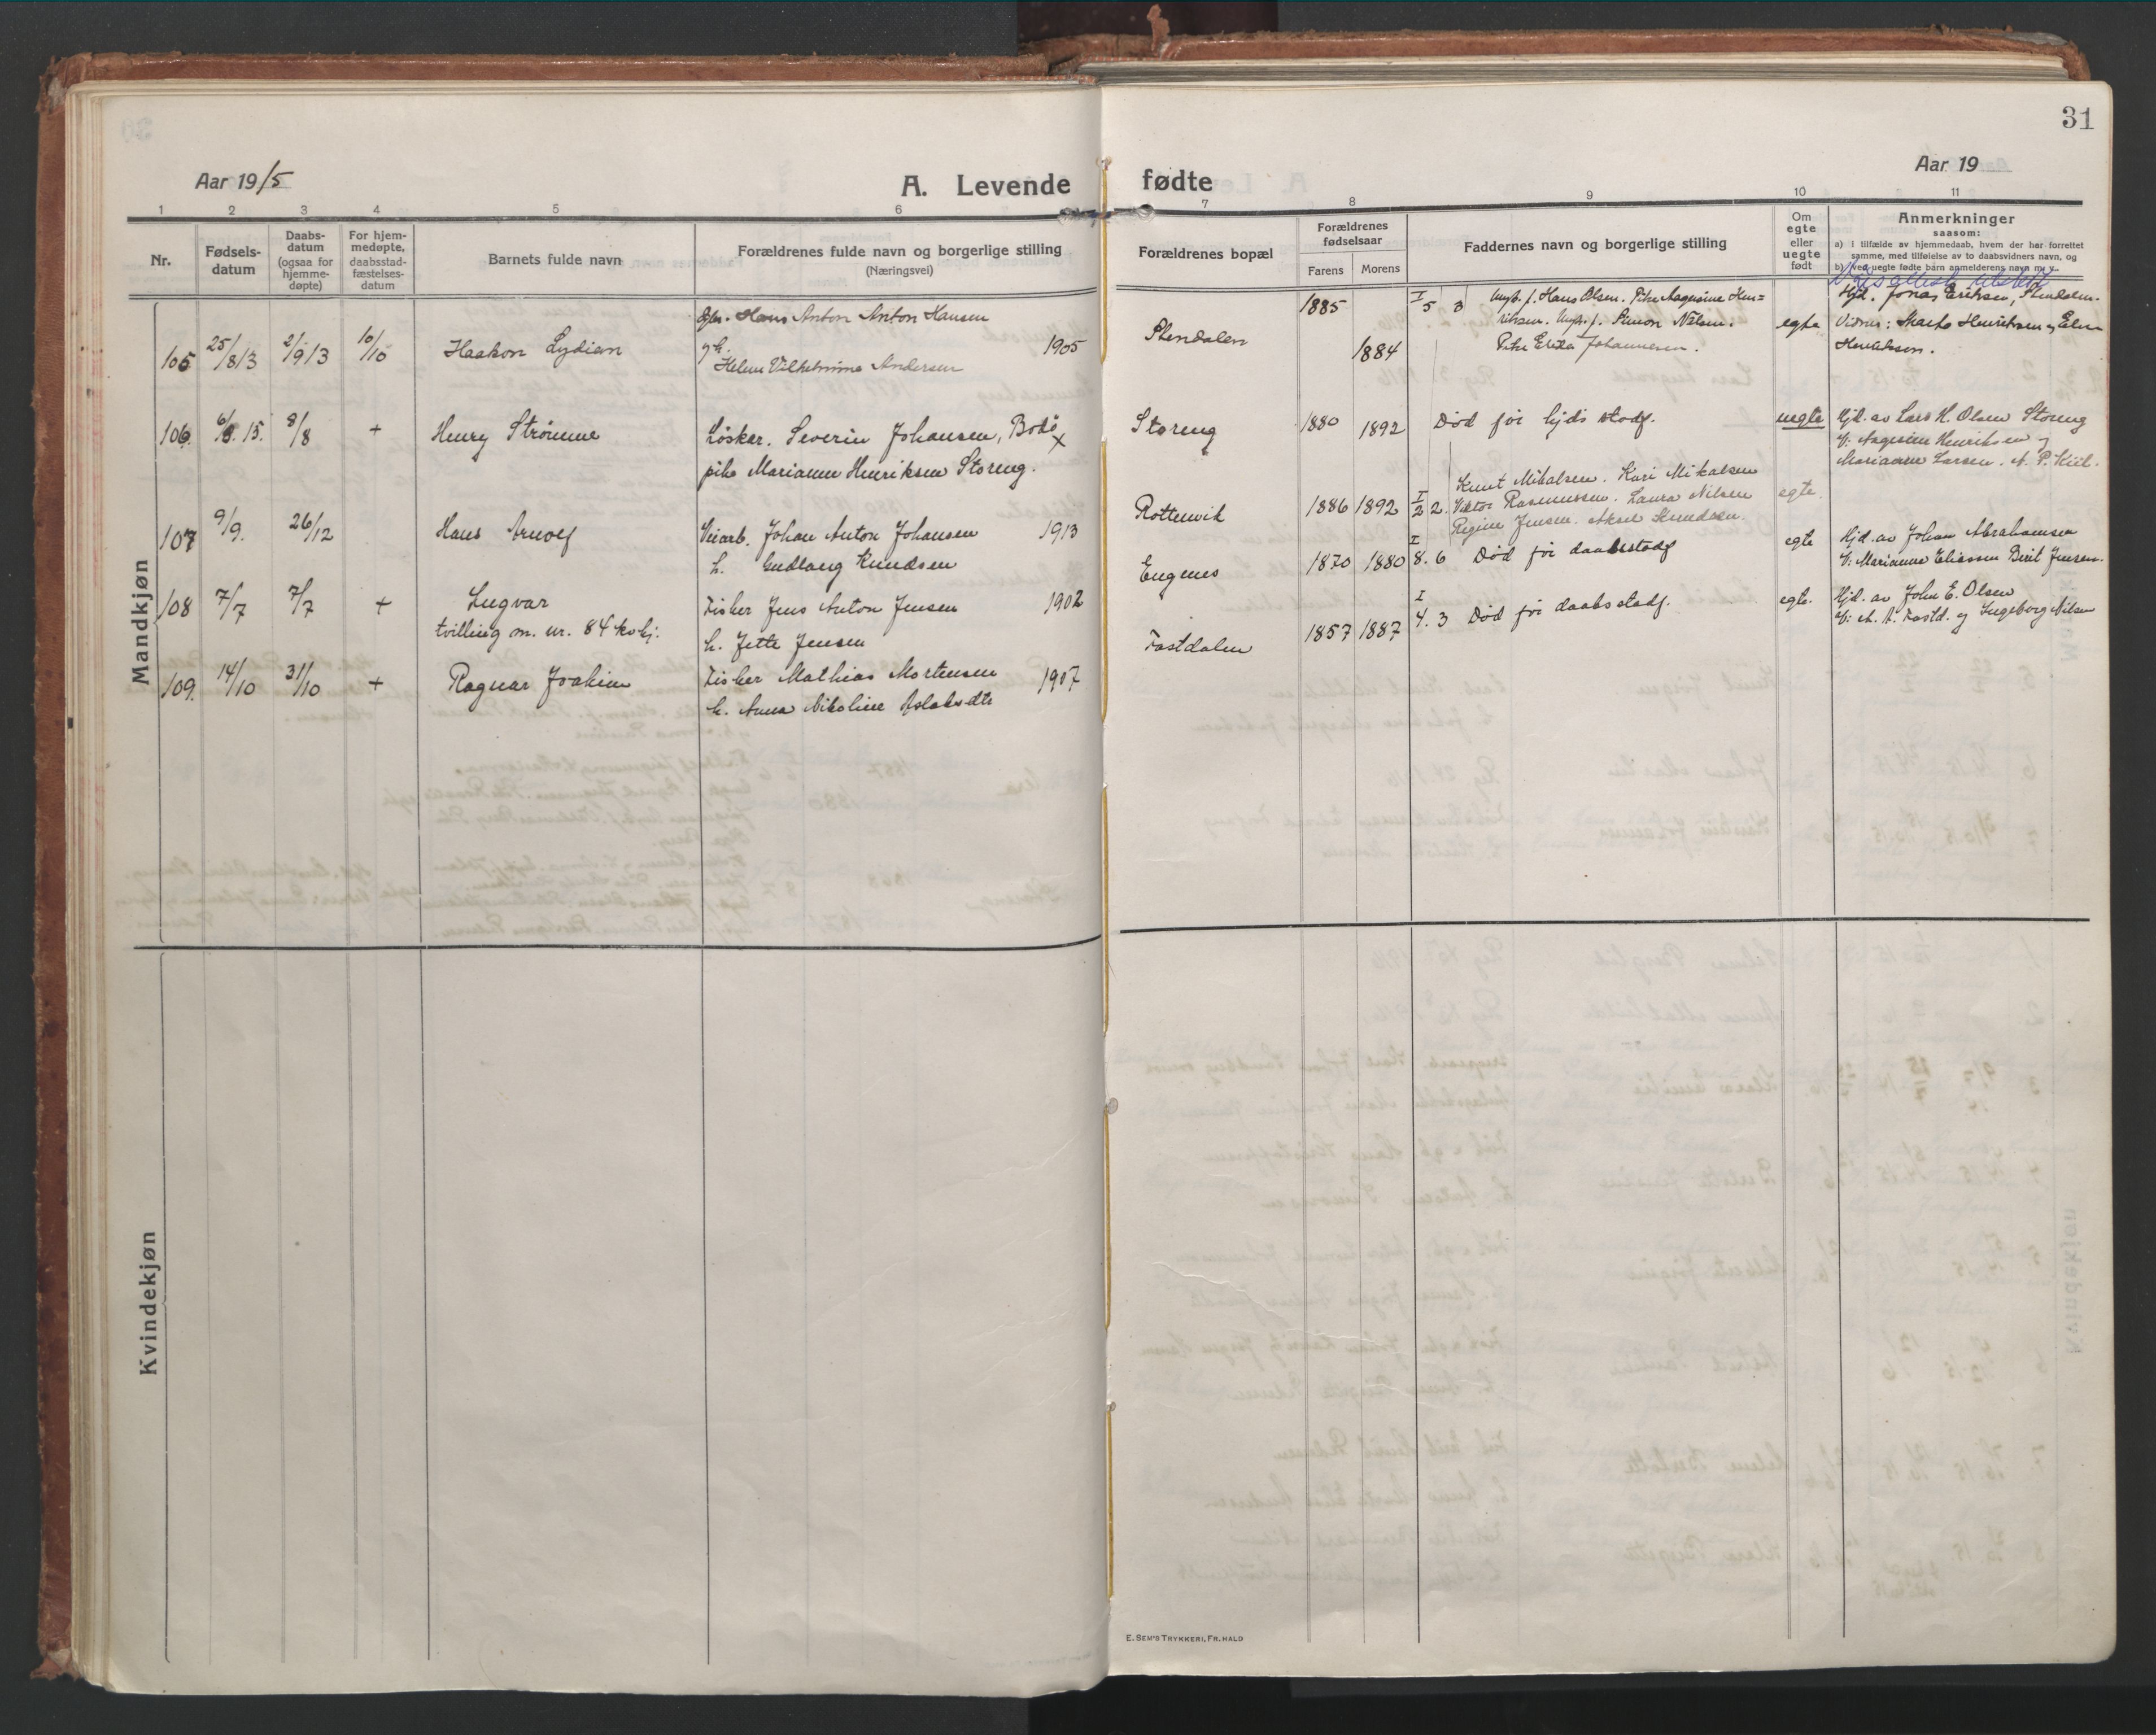 31
Aar 1915
A. Levende
fødte
Aar 19
1 2 3 4 5 6 7 8 9 10 11
Nr.
Fødsels-
datum
Daabs-
datum
(ogsaa for
hjemme-
døpte)
For hjem-
medøpte,
daabsstad-
fæstelses-
datum
Barnets fulde navn
Forældrenes fulde navn og borgerlige stilling
(Næringsvei)
Forældrenes bopæl
Forældrenes
fødselsaar
Farens Morens
Faddernes navn og borgerlige stilling
Om
egte
eller
uegte
født
Anmerkninger
saasom:
a) i tilfælde av hjemmedaab, hvem der har forrettet
samme, med tilføielse av to daabsvidners navn, og
b) ved uegte fødte barn anmelderens navn m. v.
Mandkjøn
105 25/8 13 2/9 13 10/10 Haakon Lydian
Hans Anton Anton Hansen
Helene Vilhelmine Andersen 1905
Stendalen 1885 1884 I 5 3
Ungk. f. Hans Olsen. Pike Aagusine Hen=
riksen. Ungk. f. Simon Nilsen.
Pike Johannesen.
egte
Hjd. Jonas Eriksen, Stendalen.
Vidner: Henriksen og
Henriksen.
106. 6/8. 15. 8/8 + Henry Strømme
Løsker. Severin Johansen, Bodø x
pike Marianne Henriksen Storeng.
Storeng 1880 1892 Død før hjds stadf. uegte
Hjd. av Lars H. Olsen Storeng
V: Aagusine Henriksen og
Marianne Larsen. A. P. Kiil.
107 9/9. 26/12 Hans Arnolf
Veiarb. Johan Anton Johansen 1913
h. Gudlaug Knudsen
Rottenvik 1886 1892 I 2 2.
Knut Mikalsen. Kari Mikalsen
Viktor Rasmussen. Laura Nilsen
Regine Jensen. Aksel Knudsen.
egte.
108 7/7 7/7 + Ingvar
tvilling m. nr. 84 kvkj.
Fisker Jens Anton Jensen 1902
h. Jette Jensen
Engenes 1870 1880 I 8. 6 Død før daabsstadf egte
Hjd. av Johan Abrahamsen
V: Marianne Eliassen Berit Jensen.
109. 14/10 31/10 + Ragnar Joakim
Fisker Mathias Mortensen 1907
h. Anna Nikoline Aslaksdtr
Fastdalen 1857 1887 I 4. 3 Død før daabsstadf. egte.
Hjd. av John E. Olsen
V: A. A. Fastd. og Ingeborg Nilsen
Kvindekjøn
E. SEM'S TRYKKERI, FR.HALD